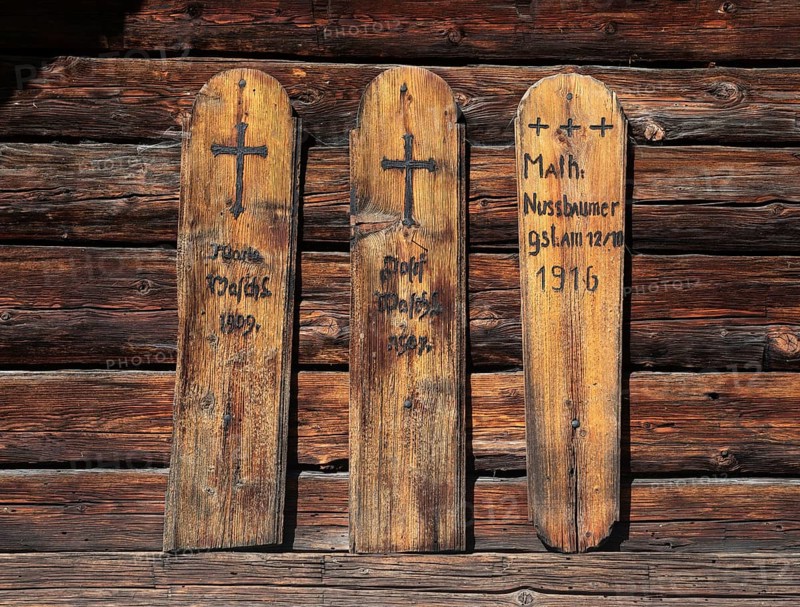 Maria
Waschl
1909.
Josef
Waschl
Math:
Nussbaumer
gst. AM 12/10
1916
PHOTO12